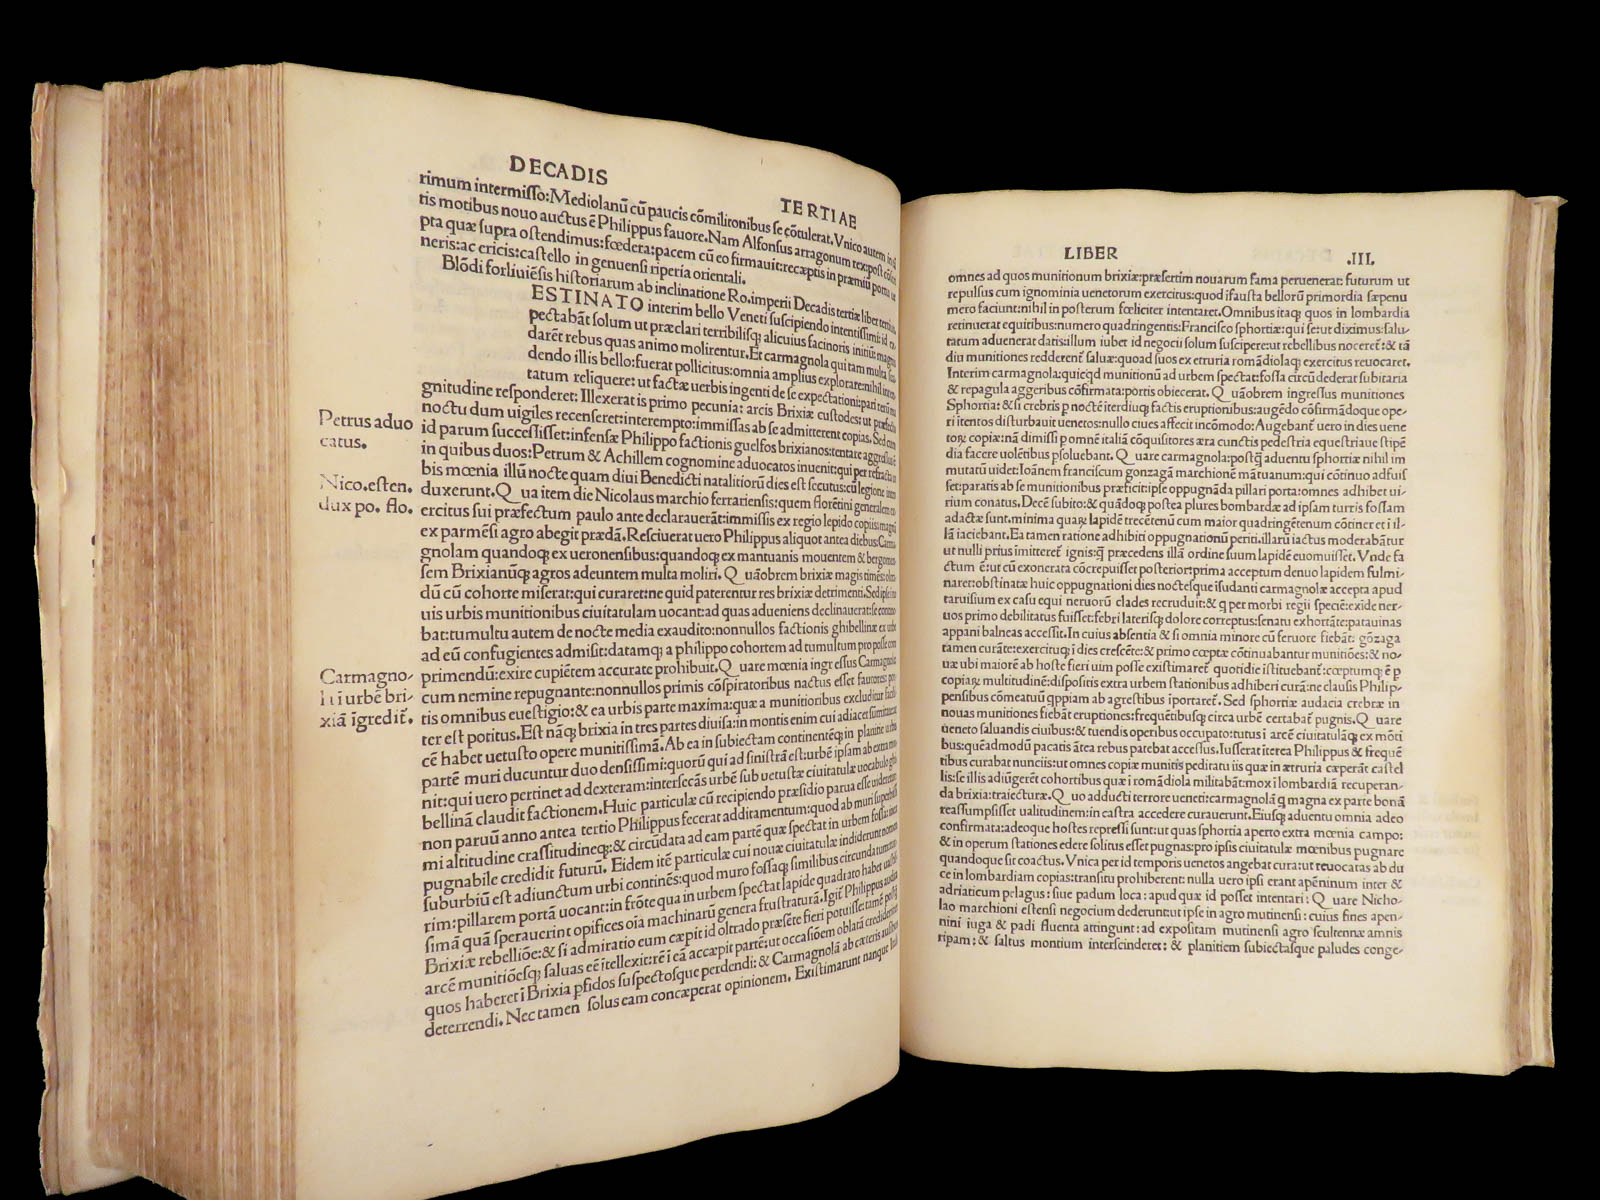 DECADIS
TERTIAE
rimum intermisso: Mediolanũ cũ paucis cõmilitonibus se cõtulerat. Vnico autem in
tis motibus nouo auctus ē Philippus fauore. Nam Alfonsus arragonum rex: post
pta quæ supra ostendimus: fœdera: pacem cũ eo firmauit: receptis in præmiũ portu
neris: ac ericis: castello in genuensi riperia orientali.
Blõdi forliuiẽsis historiarum ab inclinatione Ro. imperii Decadis tertiæ liber tertius.
ESTINATO interim bello Veneti suscipiendo intentissimi: id
pectabãt solum ut præclari terribilisq; alicuius facinoris initiũ: magnũ
darẽt rebus quas animo molirentur. Et carmagnola qui tam multa
dendo illis bello: fuerat pollicitus: omnia amplius explorare: nihil
tatum reliquere: ut factæ uerbis ingenti de se expectationi: pari
gnitudine responderet. Illexerat is primo pecunia: arcis Brixiæ custodes: ut
noctu dum uigiles recenseret: interempto: immissas ab se admitterent copias. Sed
id parum successisset: infensæ Philippo factionis guelfos brixianos: tentare aggressus ē
in quibus duos: Petrum & Achillem cognomine aduocatos inuenit: qui per
bis mœnia illũ nocte quam diui Benedicti natalitiorũ dies est secutus: cũ legione
duxerunt. Qua item die Nicolaus marchio ferrariensis: quem florẽtini generalem
ercitus sui præfectum paulo ante declarauerãt: immissis ex regio lepido copiis: magnã
ex parmẽsi agro abegit prædã. Resciuerat uero Philippus aliquot antea diebus: Carma
gnolam quandoq; ex ueronensibus: quandoq; ex mantuanis mouentem & bergomen
sem Brixianũq; agros adeuntem multa moliri. Quãobrem brixiæ magis timẽs:
dũ cũ cohorte miserat: qui curaret: ne quid paterentur res brixiæ detrimenti. Sed
uis urbis munitionibus ciuitatulam uocant: ad quas adueniens declinauerat: se
bat: tumultu autem de nocte media exaudito: nonnullos factionis ghibellinæ ex urbe
ad eũ confugientes admisit: datamq; a philippo cohortem ad tumultum pro posse com
primendũ: exire cupiẽtem accurate prohibuit. Quare mœnia ingressus Carmagnola
cum nemine repugnante: nonnullos primis cõspiratoribus nactus esset fautores:
tis omnibus euestigio: & ea urbis parte maxima: quæ a munitionibus excluditur facili
ter est potitus. Est nãq; brixia in tres partes diuisa: in montis enim cui adiacet
cẽ habet uetusto opere munitissimã. Ab ea in subiectam continentẽq; in planitie urbis
partẽ muri ducuntur duo densissimi: quorũ qui ad sinistrã est: urbẽ ipsam ab extra
nit: qui uero pertinet ad dexteram: intersecãs urbẽ sub uetustæ ciuitatulæ uocabulo
bellinã claudit factionem. Huic particulæ cũ recipiendo præsidio parua esse uideretur
non paruũ anno antea tertio Philippus fecerat additamentum: quod ab muri
mi altitudine crassitudineq;: & circũdata ad eam partẽ quæ spectat in urbem fossa:
pugnabile credidit futurũ. Eidem itẽ particulæ cui nouæ ciuitatulæ indiderunt nomen
suburbiũ est adiunctum urbi continẽs: quod muro fossaq; similibus circundatum
rim: pillarem portã uocant: in frõte qua in urbem spectat lapide quadrato habet
simã quã sperauerint opifices oĩa machinarũ genera frustraturã. Igiť Philippus audita
Brixiæ rebelliõe: & si admiratio eum cœpit id oltrado præsẽte fieri potuisse: tamẽ postq;
arcẽ munitiõesq; saluas eẽ ĩtellexit: rẽ ĩ eã accæpit partẽ: ut occasiõem oblatã crediderit
quos haberet ĩ Brixia pfidos suspectosque perdendi: & Carmagnolã ab cæteris
deterrendi. Nec tamen solus eam concæperat opinionem. Existimarunt nanque
Petrus aduo
catus.
Nico. esten.
dux po. flo.
Carmagno-
la ĩ urbẽ bri-
xiã ĩgrediť.
LIBER
.III.
omnes ad quos munitionum brixiæ: præsertim nouarum fama peruenerat: futurum ut
repulsus cum ignominia uenetorum exercitus: quod ĩfausta bellorũ primordia sæpenu
mero faciunt: nihil in posterum fœliciter intentaret. Omnibus itaq; quos in lombardia
retinuerat equitibus: numero quadringentis: Francisco sphortiæ: qui se: ut diximus: salu-
tatum aduenerat datis: illum iuber id negocii solum suscipere: ut rebellibus noceret: & tã
diu munitiones redderenť saluæ: quoad suos ex etruria romãdiolaq; exercitus reuocaret.
Interim carmagnola: quicqd munitionũ ad urbem spectat: fossa circũ dederat subitaria
& repagula aggeribus cõfirmata: portis obiecerat. Quãobrem ingressus munitiones
Sphortia: & si crebris p noctẽ iterdiuq; factis eruptionibus: augẽdo cõfirmãdoque ope-
ri itentos disturbauit uenetos: nullo ciues affecit incõmodo: Augebanť uero in dies uene
toꝝ copiæ: nã dimissi p omnẽ italiã cõquisitores æra cunctis pedestria equestriaue stipẽ
dia facere uolẽtibus psoluebant. Quare carmagnola: postq̃ aduentu sphortiæ nihil im
mutatũ uidet: Ioãnem franciscum gonzagã marchionẽ mãtuanum: qui cõtinuo adfuis
set: paratis ab se munitionibus præficit: ipse oppugnãda pillari porta: omnes adhibet ui-
rium conatus. Decẽ subito: & quãdoq; postea plures bombardæ ad ipsam turris fossam
adactæ sunt. minima quaꝝ lapidẽ trecẽtenũ cum maior quadringẽtenum cõtineret ĩ il-
lã iaciebant. Ea tamen ratione adhibiti oppugnationũ periti. illarũ iactus moderabãtur
ut nulli prius imitteret ignis: q̃ præcedens illã ordine suum lapidẽ euomuisset. Vnde fa
ctum ē: ut cũ exonerata cõcrepuisset posterior: prima acceptum denuo lapidem fulmi-
naret: obstinatæ huic oppugnationi dies noctesque ĩsudanti carmagnolæ accepta apud
taruisium ex casu equi neruorũ clades recruduit: & q per morbi regii speciẽ: exide ner-
uos primo debilitatus fuisset: febri laterisq; dolore correptus: senatu exhortãte: patauinas
appani balneas accessit. In cuius absentia & si omnia minore cũ feruore fiebãt: gõzaga
tamen curãte: exercituq; ĩ dies crescẽte: & primo cœptæ cõtinuabantur munitiões: & no-
uæ ubi maiorẽ ab hoste fieri uim posse existimareť quotidie ĩstituebanť: cœptumq; ē p
copiaꝝ multitudinẽ: dispositis extra urbem stationibus adhiberi curã: ne clausis Philip-
pensibus cõmeatũ qppiam ab agrestibus ĩportareť. Sed sphortiæ audacia crebræ in
nouas munitiones fiebãt eruptiones: frequẽtibusq; circa urbẽ certabať pugnis. Quare
ueneto saluandis ciuibus: & tuendis operibus occupato: tutus ĩ arcẽ ciuitatulãq; ex mõti
bus: quẽadmodũ pacatis ãtea rebus patebat accessus. Iusserat iterea Philippus & frequẽ
tibus curabat nunciis: ut omnes copiæ munitis peditatu iis quæ in ætruria cæperãt castel
lis: se illis adiũgerẽt cohortibus quæ ĩ romãdiola militabãt: mox ĩ lombardiã recuperan-
da brixia: traiecturæ. Quo adducti terrore ueneti: carmagnolã q magna ex parte bonã
reassumpsisset ualitudinem: in castra accedere curauerunt. Eiusq; aduentu omnia adeo
confirmata: adeoque hostes repressi sunt: ut quas sphortia aperto extra mœnia campo:
& in operum stationes edere solitus esset pugnas: pro ipsis ciuitatulæ mœnibus pugnare
quandoque sit coactus. Vnica per id temporis uenetos angebat cura: ut reuocatas ab du
ce in lombardiam copias: transitu prohiberent: nulla uero ipsi erant apẽninum inter &
adriaticum pelagus: siue padum loca: apud quæ id posset intentari: Quare Nicho-
lao marchioni estensi negocium dederunt: ut ipse in agro mutinensi: cuius fines apen-
nini iuga & padi fluenta attingunt: ad expositam mutinensi agro scultennæ amnis
ripam: & saltus montium interscinderet: & planitiem subiectasque paludes conge-